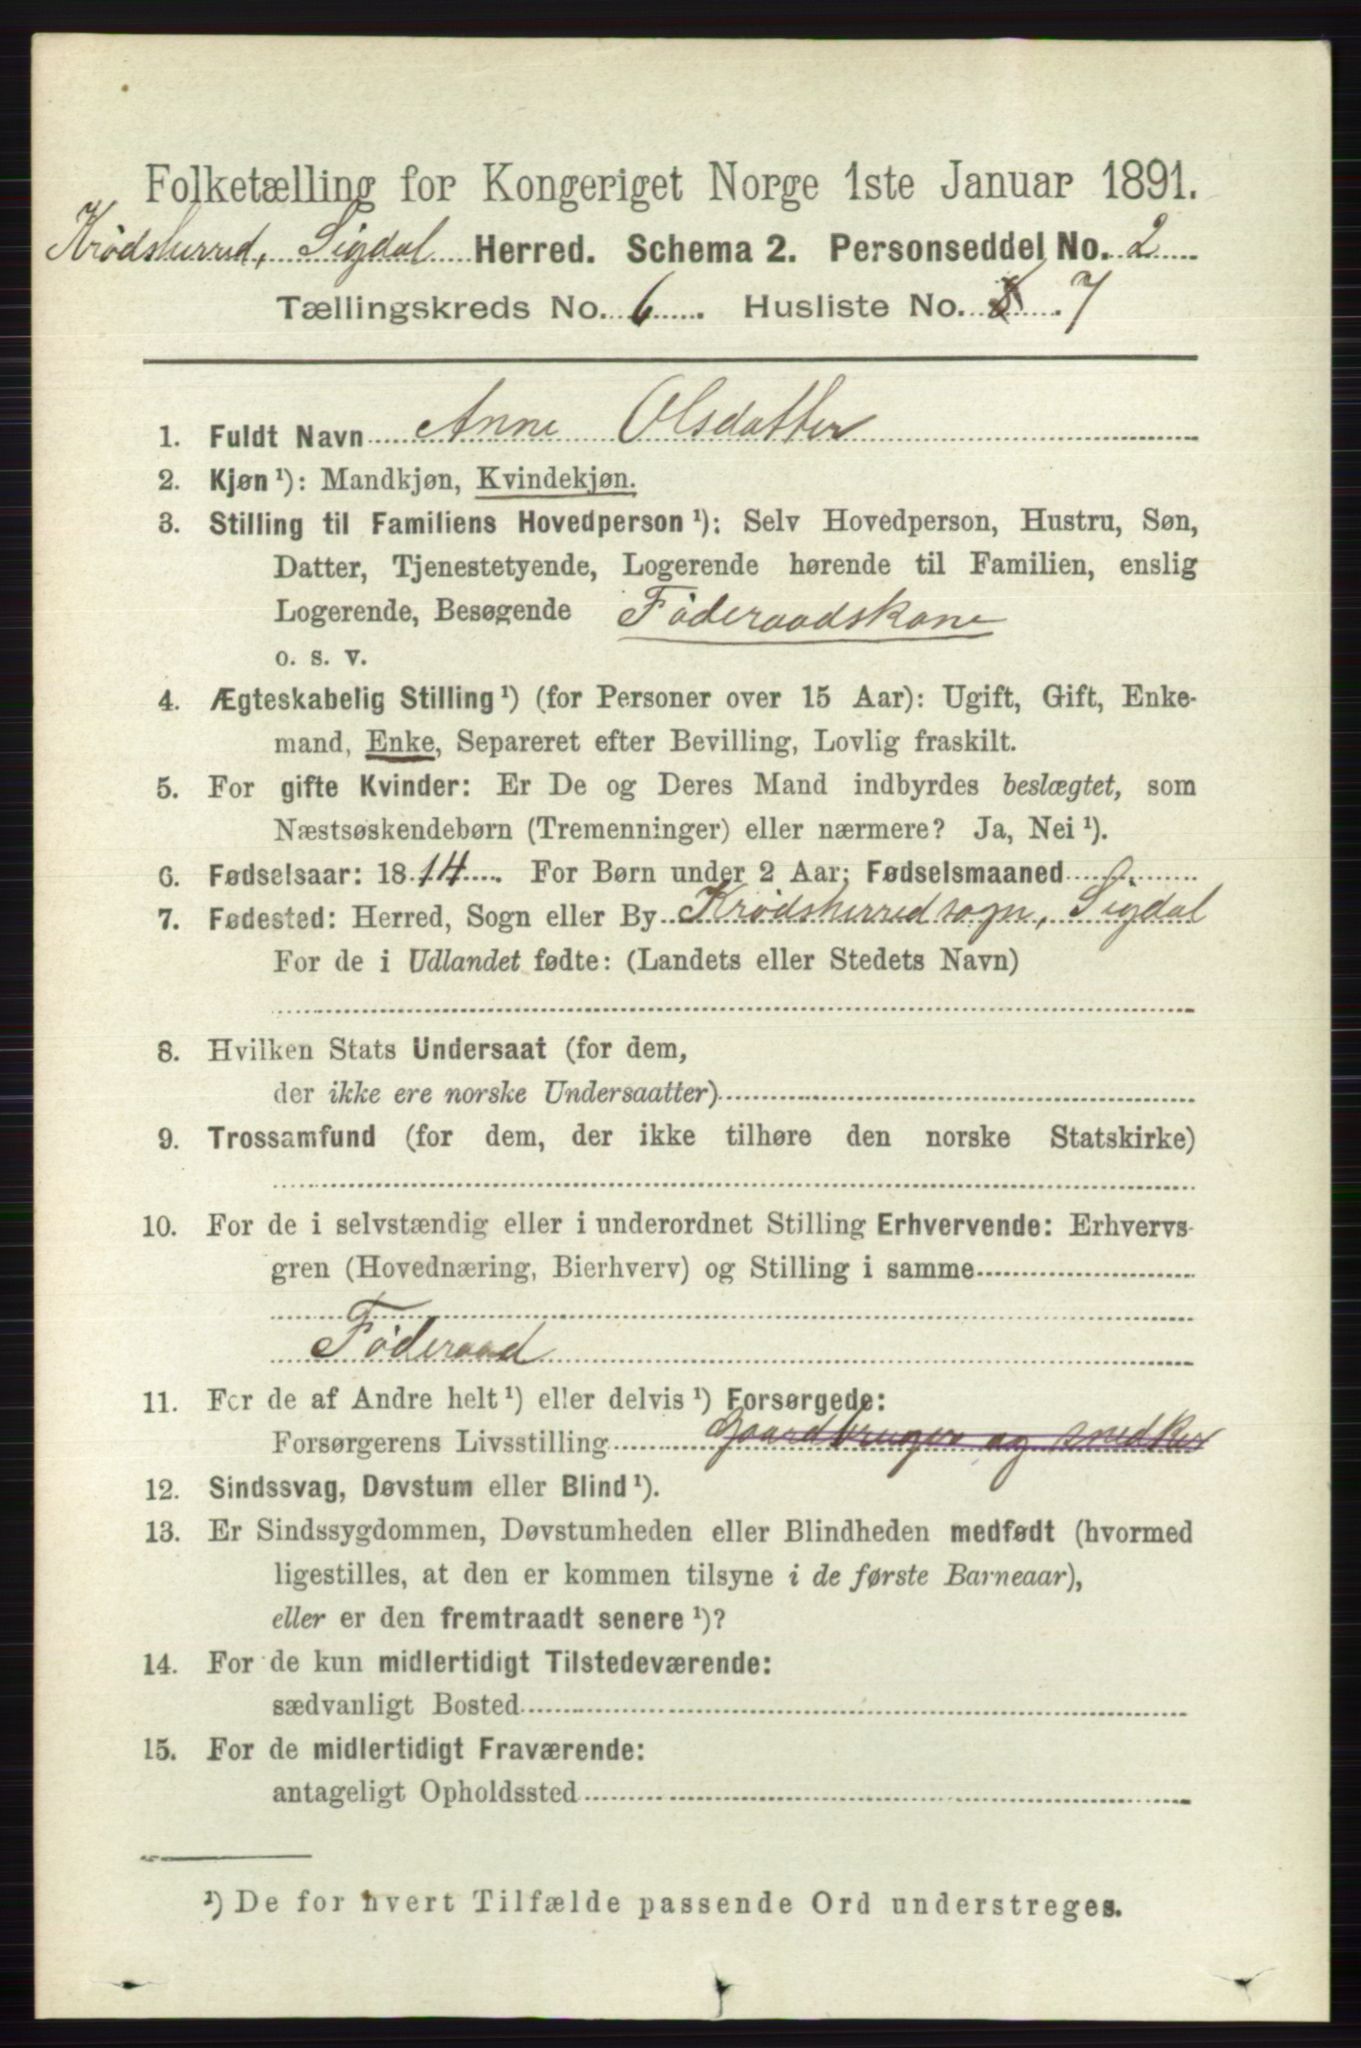 Folketælling for Kongeriget Norge 1ste Januar 1891.
Krødsherred, Sigdal Herred. Schema 2. Personseddel No. 2
Tællingskreds No. 6. Husliste No. 8 7
1. Fuldt Navn Anne Olsdatter
2. Kjøn¹): Mandkjøn, Kvindekjøn.
3. Stilling til Familiens Hovedperson¹): Selv Hovedperson, Hustru, Søn,
Datter, Tjenestetyende, Logerende hørende til Familien, enslig
Logerende, Besøgende Føderaadskone
o. s. v.
4. Ægteskabelig Stilling¹) (for Personer over 15 Aar): Ugift, Gift, Enke-
mand, Enke, Separeret efter Bevilling, Lovlig fraskilt.
5. For gifte Kvinder: Er De og Deres Mand indbyrdes beslægtet, som
Næstsøskendebørn (Tremenninger) eller nærmere? Ja, Nei¹).
6. Fødselsaar: 1814. For Børn under 2 Aar; Fødselsmaaned
7. Fødested: Herred, Sogn eller By Krødsherred sogn, Sigdal
For de i Udlandet fødte: (Landets eller Stedets Navn)
8. Hvilken Stats Undersaat (for dem,
der ikke ere norske Undersaatter)
9. Trossamfund (for dem, der ikke tilhøre den norske Statskirke)
10. For de i selvstændig eller i underordnet Stilling Erhvervende: Erhvervs-
gren (Hovednæring, Bierhverv) og Stilling i samme
Føderaad
11. For de af Andre helt¹) eller delvis¹) Forsørgede:
Forsørgerens Livsstilling Gaardbruger og snedker
12. Sindssvag, Døvstum eller Blind¹).
13. Er Sindssygdommen, Døvstumheden eller Blindheden medfødt (hvormed
ligestilles, at den er kommen tilsyne i de første Barneaar),
eller er den fremtraadt senere¹)?
14. For de kun midlertidigt Tilstedeværende:
sædvanligt Bosted
15. For de midlertidigt Fraværende:
antageligt Opholdssted
¹) De for hvert Tilfælde passende Ord understreges.